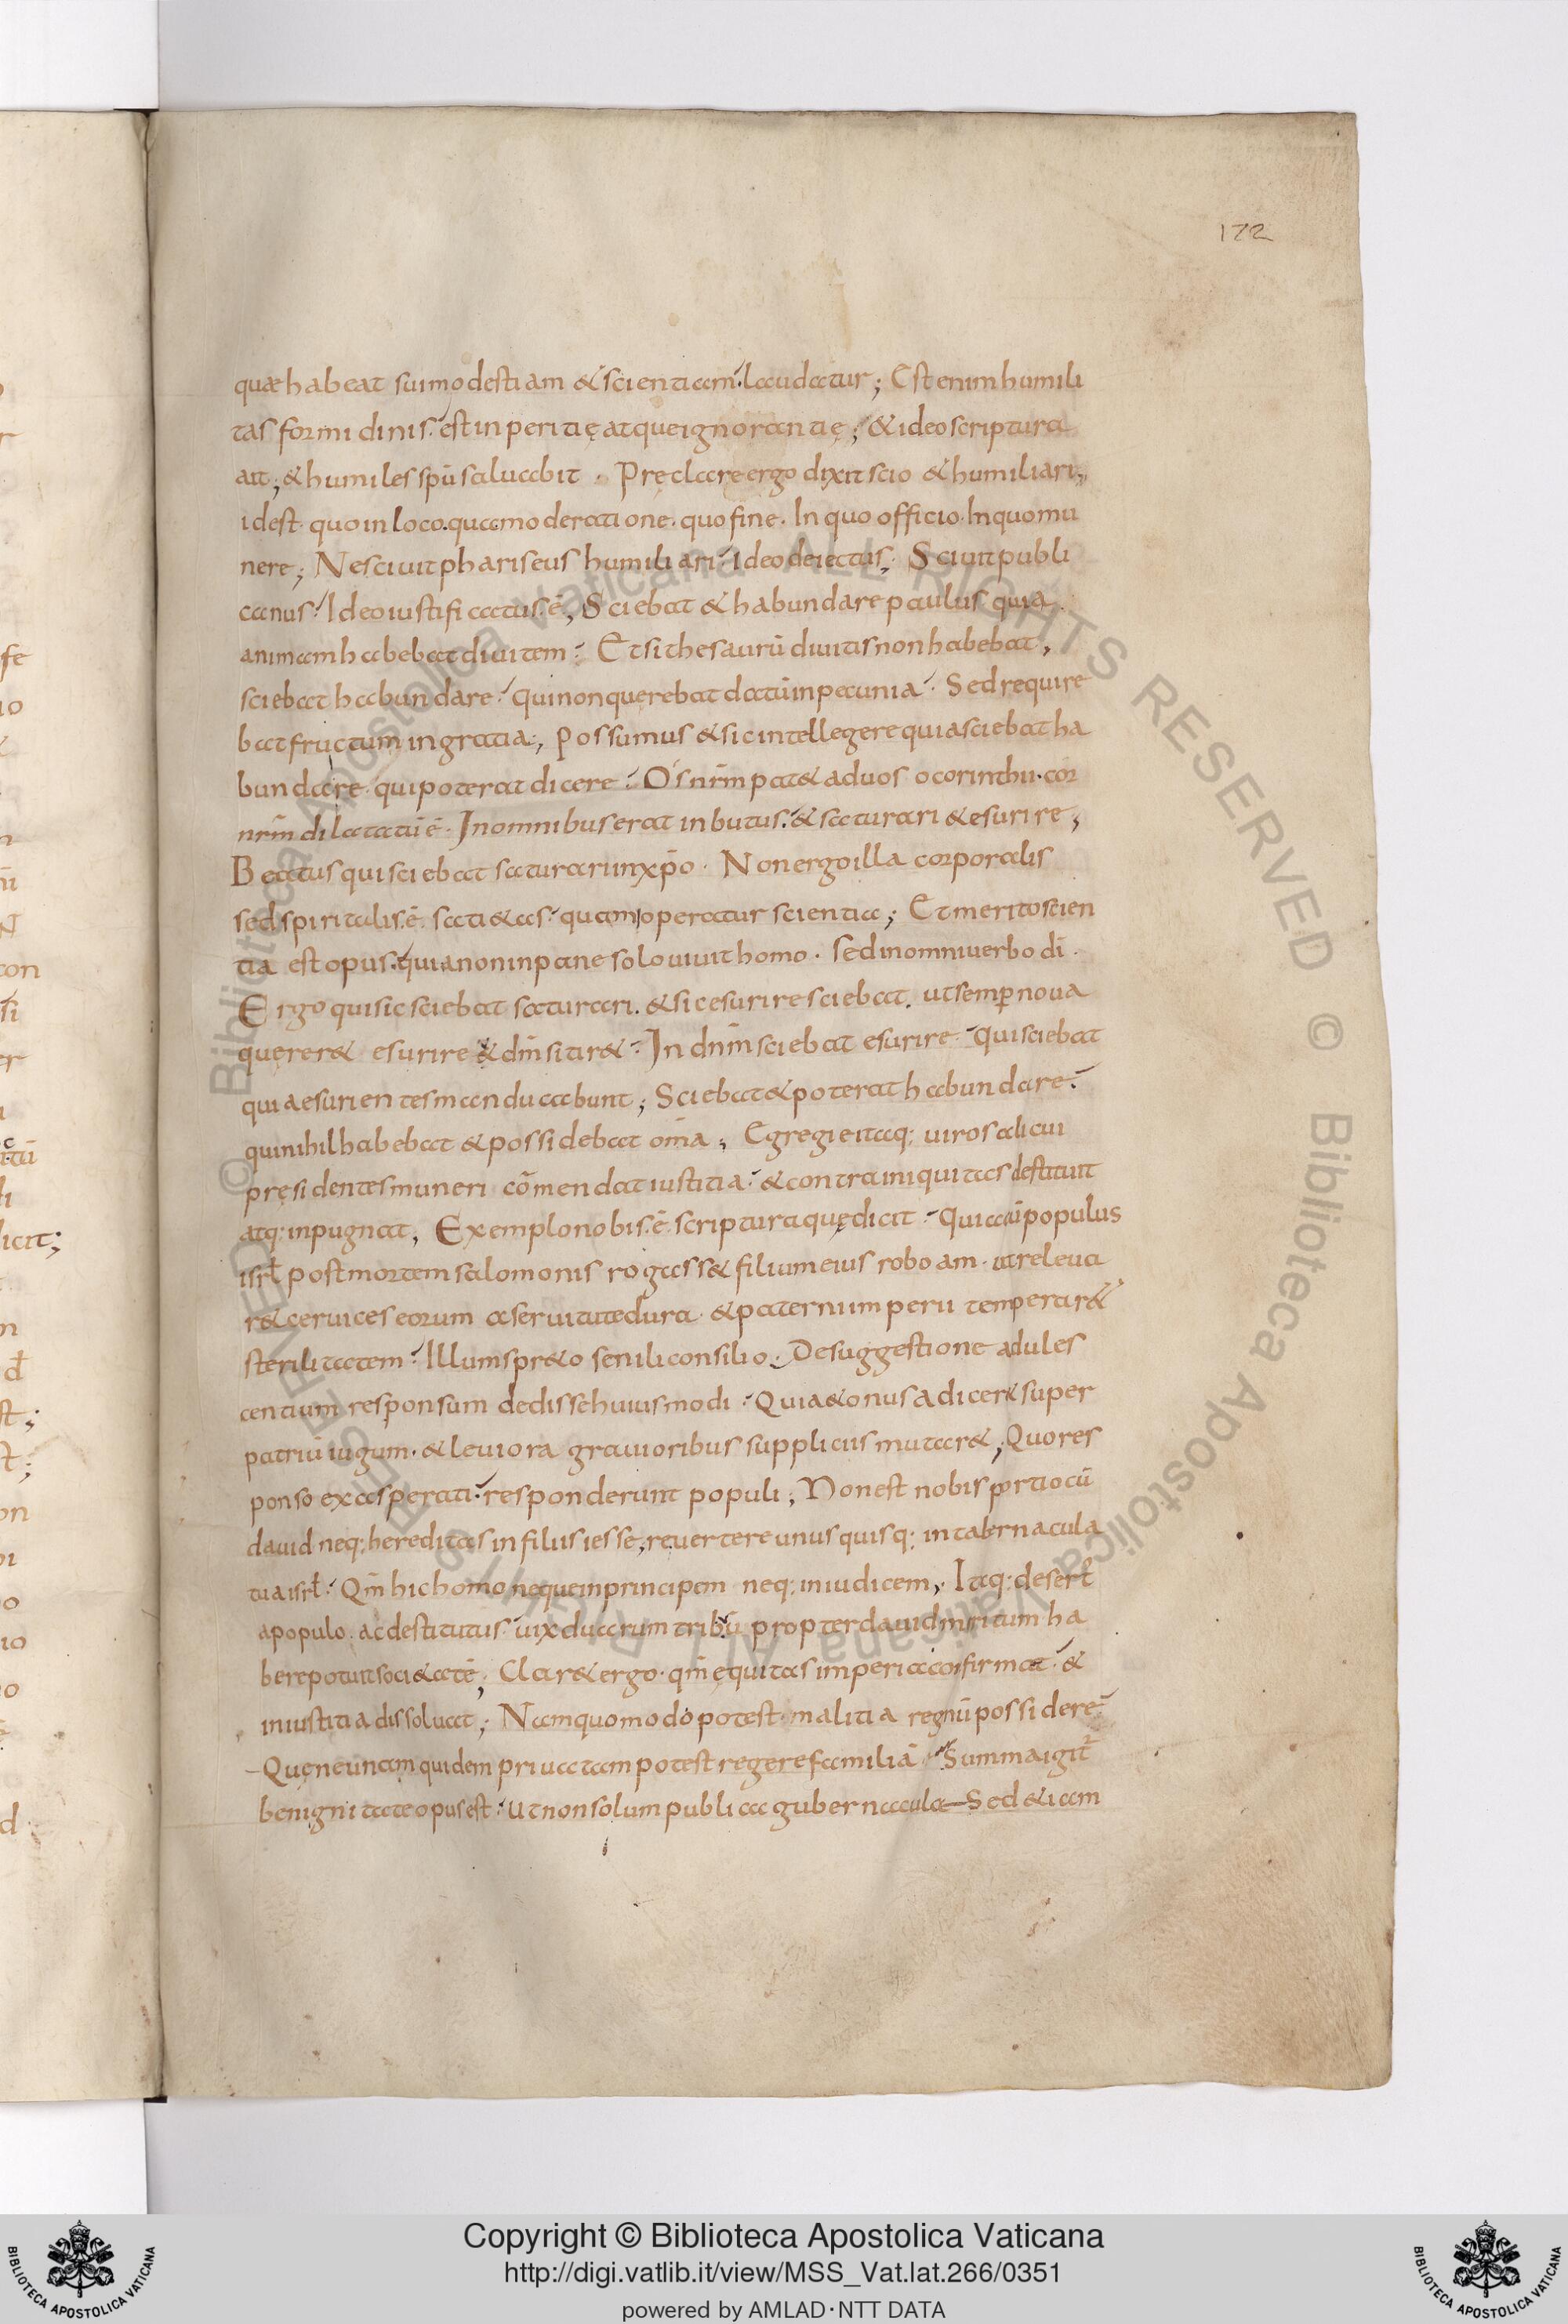 172
quæ habeat sui modestiam & scientiam laudatur; Est enim humili
tas formidinis. est inperitię atque ignorantię; & ideo scriptura
ait; & humiles spū saluabit. Pręclare ergo dixit scio & humiliari;
idest quo in loco. qua moderatione. quo fine. In quo officio. In quo mu
nere; Nesciuit phariseus humiliari. Ideo deiectus; Sciuit publi
canus. Ideo iustificatus ē, Sciebat & habundare paulus quia
animam habebat diuitem. Etsi thesaurū diuitis non habebat,
sciebat habundare. qui non querebat datū in pecunia. Sed require
bat fructum in gratia;, Possumus & sic intellegere quia sciebat ha
bundare. qui poterat dicere. Os nr̄m pat& ad uos o corinthii. cor
nr̄m dilatatū ē. In omnibus erat inbutus. & saturari & esurire;
Beatus qui sciebat saturari in xp̄o. Non ergo illa corporalis
sed spiritalis ē sati&as. quam operatur scientia; Et merito scien
tia est opus. quia non in pane solo uiuit homo. sed in omni uerbo dī.
Ergo qui sic sciebat saturari. & sic esurire sciebat. ut semꝑ noua
querer& esurire & dn̄m sitir&. In dn̄m sciebat esurire. qui sciebat
quia esurientes manducabunt; Sciebat & poterat habundare.
qui nihil habebat & possidebat om̄a; Egregie itaq; uiros alicui
pręsidentes muneri cōmendat iustitia. & contra iniquitas destituit
atq; inpugnat, Exemplo nobis ē scriptura quę dicit. Quia cū populus
isrł post mortem salomonis rogass& filium eius roboam. ut releua
r& ceruices eorum a seruitute dura & paterni imperii temperar&
sterilitatem. Illum spr&o senili consilio. De suggestione adules
centium responsum dedisse huiusmodi. Quia & onus adicer& super
patriū iugum. & leuiora grauioribus suppliciis mutar&; Quo res
ponso exasperati. responderunt populi; Non est nobis portio cū
dauid neq; hereditas in filiis iesse, reuertere unusquisq; in tabernacula
tua isrł. Qm̄ hic homo neque in principem neq; in iudicem,. Itaq; desert᷒
a populo. ac destitutus. uix duarum tribuū propter dauid meritum ha
bere potuit soci&atē; Clar& ergo. qm̄ ęquitas imperia confirmat. &
iniustitia dissoluat; Nam quomodo potest. malitia regnū possidere.
Quę ne unam quidem priuatam potest regere familiā. Summa igit᷒
benignitate opus est. Ut non solum publica gubernacula Sed &iam
fe
io
con
si
er
licit;
st;
t;
on
io
Copyright © Biblioteca Apostolica Vaticana
http://digi.vatlib.it/view/MSS_Vat.lat.266/0351
powered by AMLAD·NTT DATA
BIBLIOTECA APOSTOLICA VATICANA
BIBLIOTECA APOSTOLICA VATICANA
© Biblioteca Apostolica Vaticana ALL RIGHTS RESERVED © Biblioteca Apostolica Vaticana ALL RIGHTS RESERVED